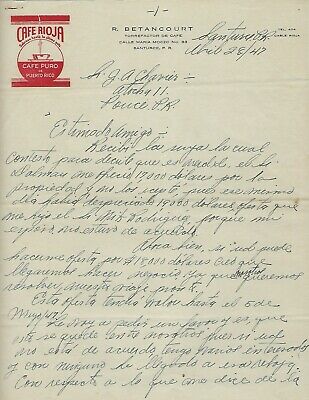 - 1 -
CAFE RIOJA
CAFE PURO
DE
PUERTO RICO
R. BETANCOURT
TORREFACTOR DE CAFE
CALLE MARIA MOCZO No. 33
SANTURCE, P. R.
TEL. 474
CABLE RIOJA
Santurce P.R.
Abril 28/47
Sr. G. A. Chavier
Atocha 11
Ponce P.R.
Estimado Amigo -
Recibi la suya la cual
contesto para decirle que es verdad el Sr
Dalmau me ofrecio 17,000 dolares por la
propiedad y no los acepte, pues ese mismo
dia habia despreciado 19000 dolares oferta que
me hizo el Sr Rodriguez, porque mi
esposa no estuvo de acuerdo.
Ahora bien, si ud puede
hacerme oferta por $18,000 dolares creo que
llegaremos hacer negocio, ya que nosotros queremos
resolver nuestro viaje pronto.
Esta oferta tendra valor hasta el 5 de
Mayo.
Le voy a pedir un favor y es, que
esto se quede entre nosotros pues si ud
no está de acuerdo tengo varios interesados
y con ninguno he llegado a esa rebaja.
Con respecto a lo que me dice de la